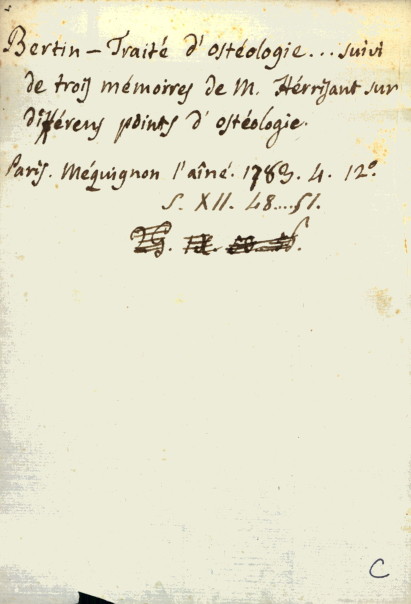 Bertin – Traité d'ostéologie... suivi
de trois mémoires de M. Hérrisant sur
différens points d'ostéologie.
Paris. Méquignon l'aîné. 1783. 4. 12°.
S. XII. 48....51.
C